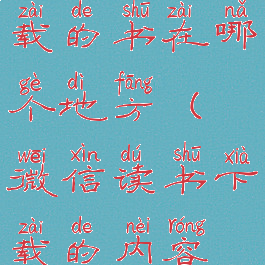 zài de shū zài nǎ
载的书在哪
gè dì fāng
个地方（
wēi xìn dú shū xià
微信读书下
zài de nèi róng
载的内容